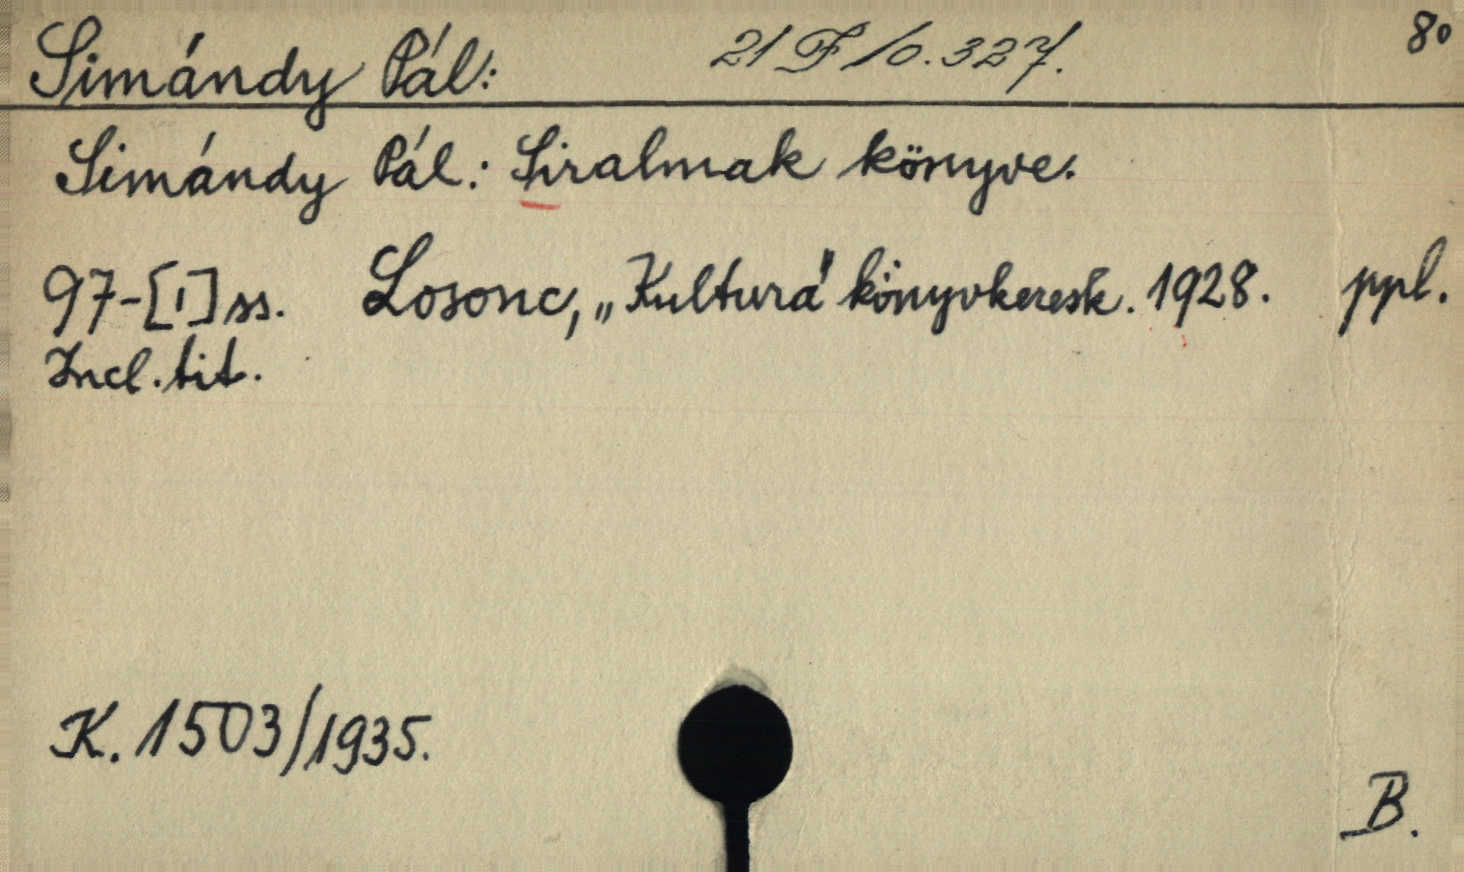 Simándy Pál: 21 F/0.327. 8o
Simándy Pál: Siralmak könyve.
97-[1] ss. Losonc, „Kultura" könyvkeresk. 1928. ppl.
Incl. tit.
K. 1503/1935.
B.